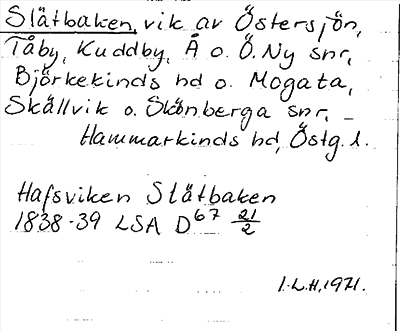 Slätbaken, vik av Östersjön,
Tåby, Kuddby, Å o. Ö. Ny snr,
Björkekinds hd o. Mogata,
Skällvik o. Skönberga snr, -
Hammarkinds hd, Östg. l.
Hafsviken Slätbaken
1838-39 LSA D67 21/2
I.L.H. 1971.